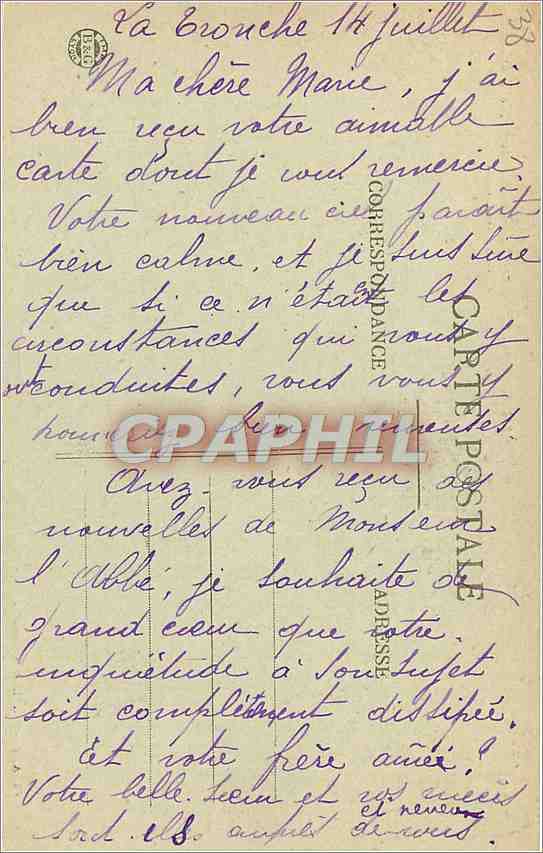 La Tronche 14 juillet
38
B&G
Ma chère Marie, j'ai
bien reçu votre aimable
carte dont je vous remercie.
Votre nouveau ciel paraît
bien calme, et je suis sûre
que si ce n'était les
circonstances qui vous y
ont conduites, vous vous y
bien remontés.
Avez-vous reçu des
nouvelles de Monsieur
l'Abbé, je souhaite de
grand cœur que votre
inquiétude à son sujet
soit complètement dissipée.
Et votre frère aîné?
Votre belle-sœur et vos nièces
et neveux
sont ils auprès de vous.
CARTE POSTALE
CORRESPONDANCE
ADRESSE
CPAPHIL